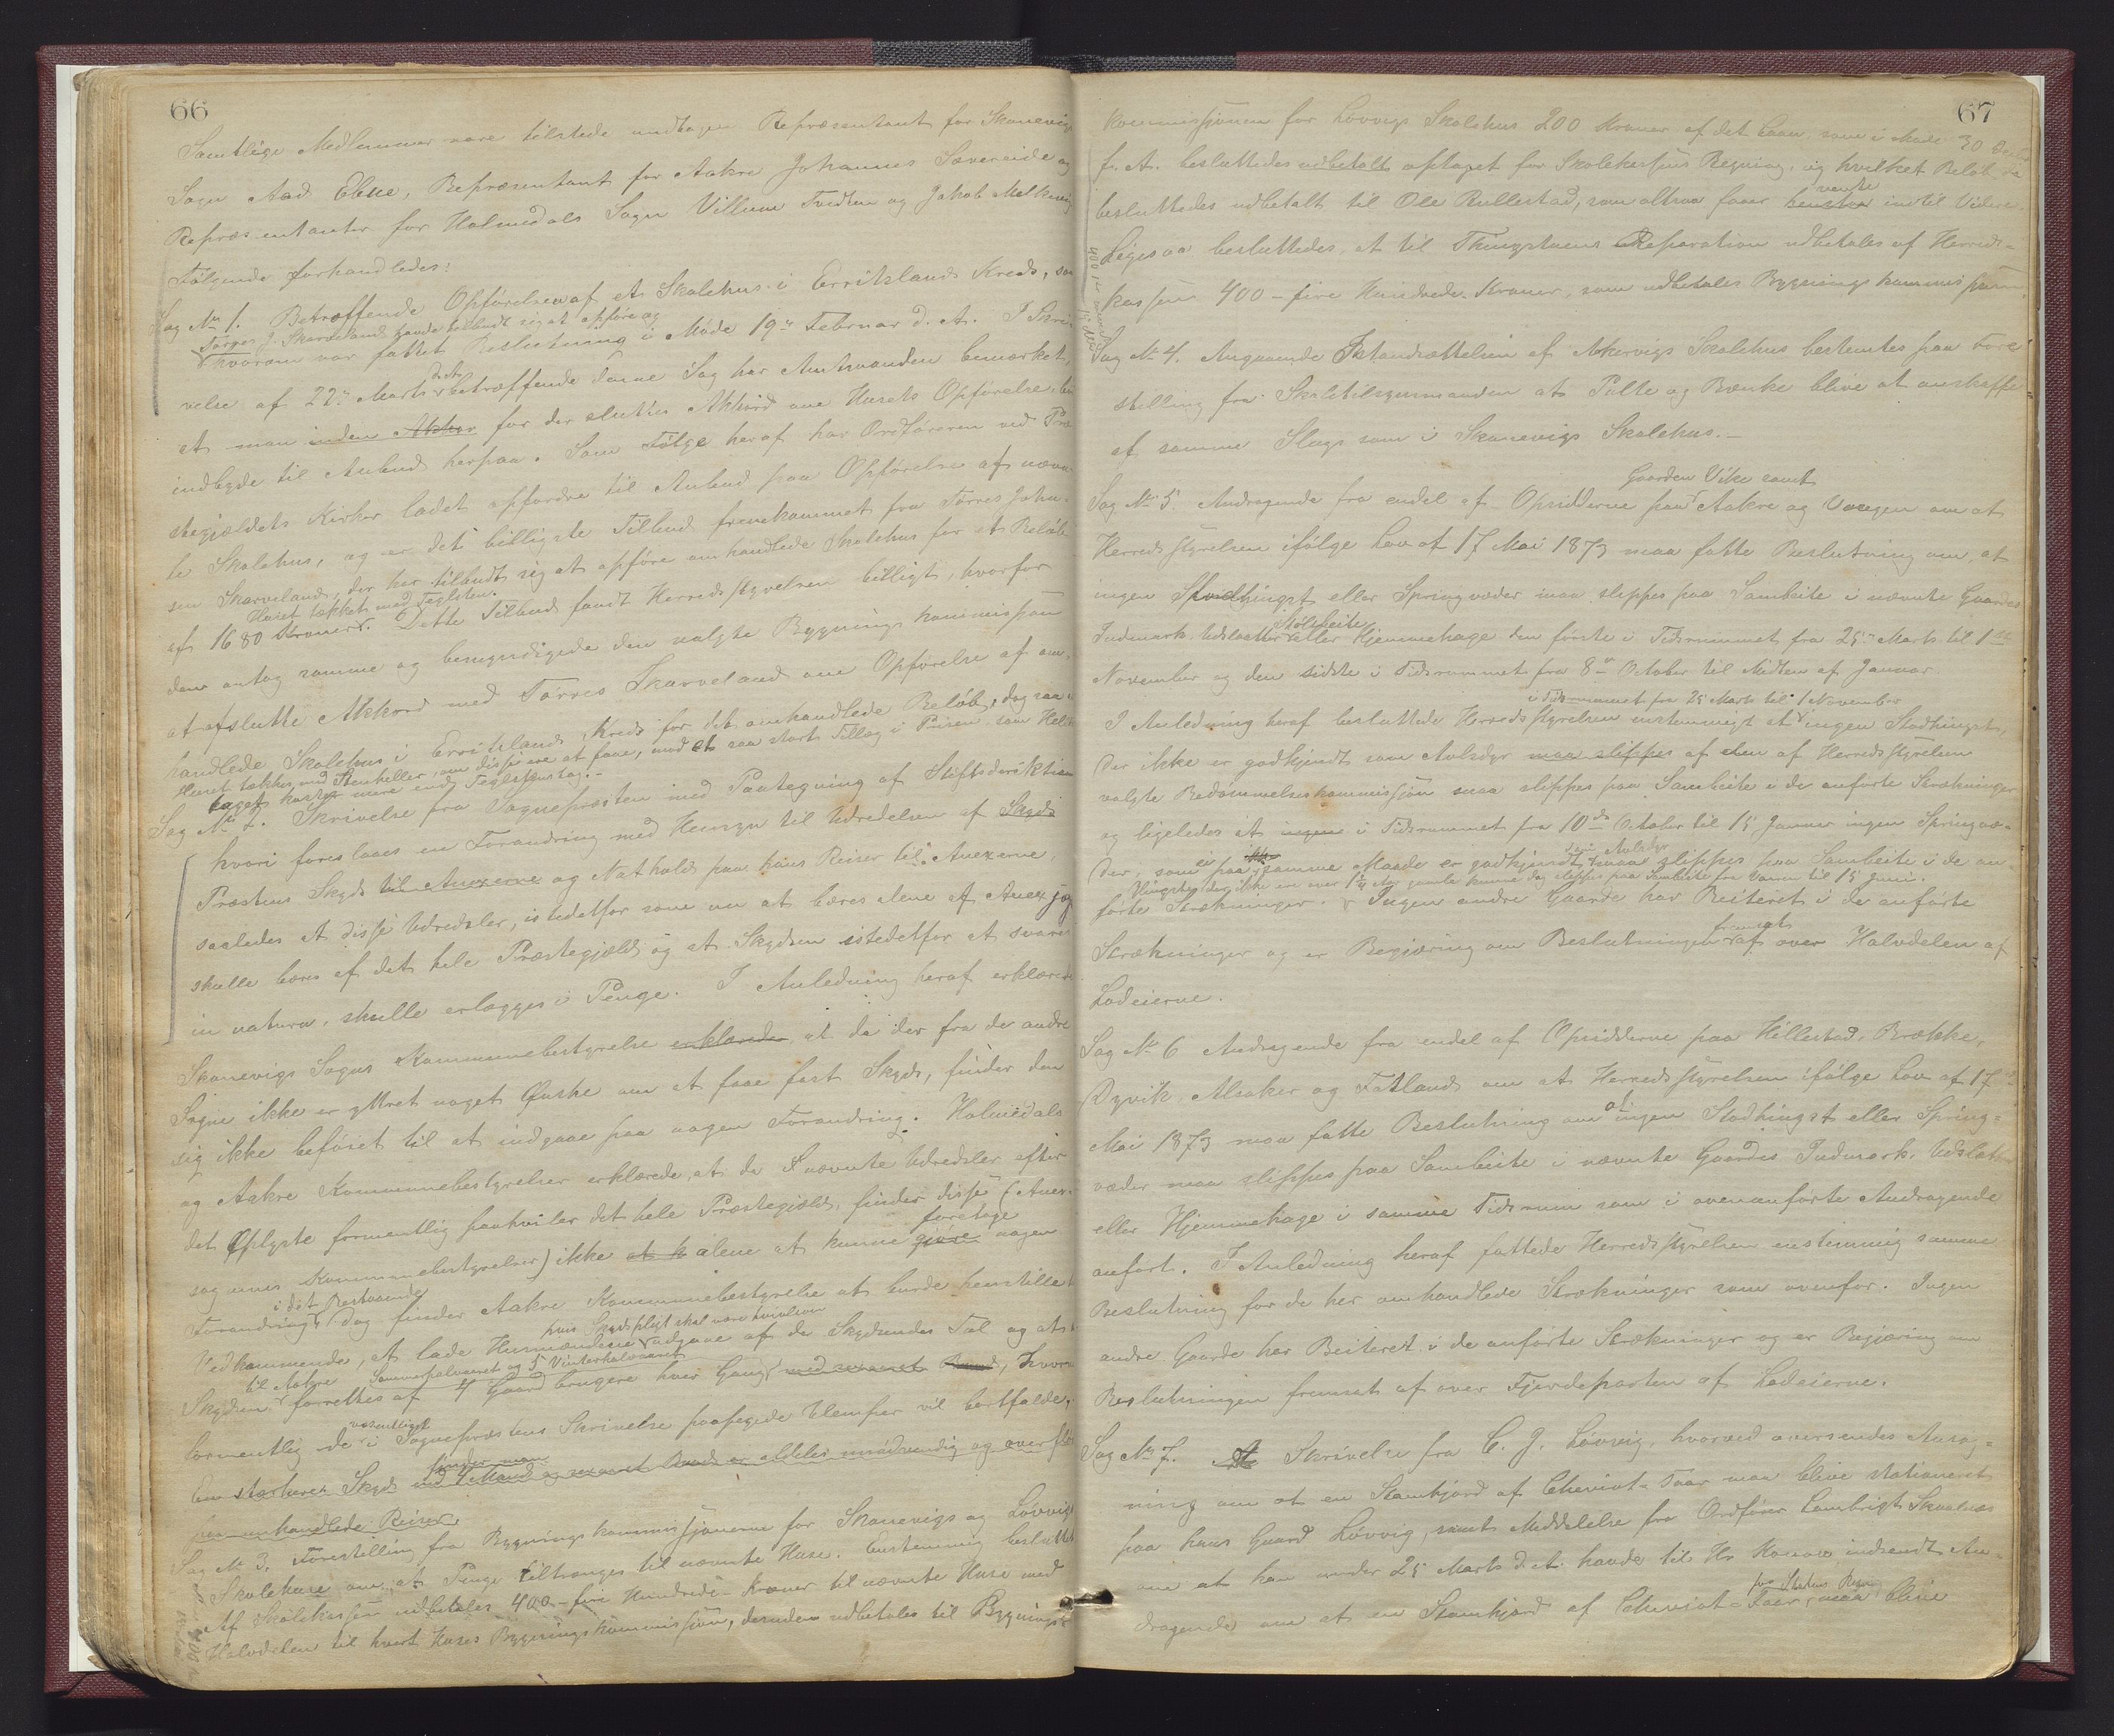 66
Samtlige Medlemmer vare tilstede undtagen Repræsentant for Skonevigs
Sogn Aad Ebne, Repræsentant for Aakre Johannes Sævereide og
Repræsentanter for Holmedals Sogn Villum Tvedten og Jakob Melkevig
Følgende forhandledes:
Sag No 1. Betræffende Opførelsen af et Skolehus i Erritsland Kreds, som
Tørges J. Skarveland havde tilbudt sig at opføre og
hvorom var fattet Beslutning i Møde 19de Februar d. A. I Skri-
velse af 22de Marts d. A. betræffende denne Sag har Amtmanden bemærket,
at man inden Akkor før der sluttes Akkord om Husets Opførelse, bør
indbyde til Anbud herpaa. Som Følge heraf har Ordføreren ved Præ-
stegjældets Kirker ladet opfordre til Anbud paa Opførelse af nævn-
te Skolehus, og er det billigste Tilbud fremkommet fra Tørres Johan-
sen Skarveland, der har tilbudt sig at opføre omhandlede Skolehus for et Beløb
Huset tækket med Teglsten.
af 1680 Kroner. Dette Tilbud fandt Herredsstyrelsen billigt, hvorfor
den antog samme og bemyndigede den valgte Bygningskommission
at afslutte Akkord med Tørres Skarveland om Opførelse af om-
handlede Skolehus i Erritsland Kreds for det omhandlede Beløb, dog saa at
Huset tækkes med Stenheller, om disse ere at faae, mod et saa stort Tillæg i Prisen som Helle-
taget koster mere end Teglstenstag.-
Sag No 2. Skrivelse fra Sognepræsten med Paategning af Stiftsdirektionen
hvori foreslaaes en Forandring med Hensyn til Udredelsen af Skyds
Præstens Skyds til Anexerne og Nathold paa hans Reiser til Anexerne,
saaledes at disse Udredsler, istedetfor som nu at bæres alene af Anex[...]
skulle bæres af det hele Præstegjæld og at Skydsen istedetfor at svares
in natura, skulle erlægges i Penge. I Anledning heraf erklærede
Skonevigs Sogns Kommunebestyrelse erklærede, at da der fra de andre
Sogne ikke er yttret noget Ønske om at faae fast Skyds, finder den
sig ikke beføiet til at indgaae paa nogen Forandring. Holmedals
og Aakre Kommunebestyrelser erklærede, at da nævnte Udredsler efter
det Oplyste formentlig paahviler det hele Præstegjæld, finder disse (Anex-
sognenes Kommunebestyrelser) ikke at k alene at kunne gjøre foretage nogen
Forandring i det Bestaaende. Dog finder Aakre Kommunebestyrelse at burde henstille til
Vedkommende, at lade Husmændene hvis Skydspligt skal være tvivlsom udgaae af de Skydsendes Tal og at
Skydsen til Aakre forrettes af 4 Sommerhalvaaret og 5 Vinterhalvaaret Gaardbrugere hver Gang med svaret Baad, hvorved
formentlig de væsentligste i Sognepræstens Skrivelse paapegede Ulemper vil bortfalde,
En stærkere Skyds finder man end 4 Mand og svaret Baad er aldeles unødvendig og overflø[...]
paa omhandlede Reiser.
Sag No 3. Forestilling fra Bygningskommissionerne for Skonevigs og Løvvigs
Skolehuse om, at Penge tiltrænges til nævnte Huse. Enstemmig besluttet
Af Skolekassen udbetales 400 - fire Hundrede Kroner til nævnte Huse med
Halvdelen til hvert Huses Bygningskommission, desuden udbetales til Bygnings-
67
kommissionen for Løvvigs Skolehus 200 Kroner af det Laan, som i Møde 30
f. A. besluttedes udbetalt optaget for Skolekassens Regning, og hvilket Beløb da
besluttedes udbetalt til Ole Rullestad, som altsaa faaer henstaa vente indtil Videre.
Ligesaa besluttedes, at til Thingstuens Reparation udbetales af Herreds-
kassen 400 - fire Hundrede Kroner, som udbetales Bygningskommissionen.
Sag No 4. Angaaende Istandsættelsen af Aakervigs Skolehus bestemtes paa Fore-
stilling fra Skoletilsynsmanden at Pulte og Bænke blive at anskaffe
af samme Slags som i Skonevigs Skolehus.-
Sag No 5. Andragende fra endel af Opsidderne paa Gaarden Vike samt Aakre og Vaagen om at
Herredsstyrelsen ifølge Lov af 17 Mai 1873 maa fatte Beslutning om, at
ingen Stodhingst eller Springvæder maa slippes paa Sambeite i nævnte Gaardes
Indmark, Udslaatter Stølsbeite eller Hjemmehage den første i Tidsrummet fra 25de Marts til 1ste
November og den sidste i Tidsrummet fra 8de October til Midten af Januar.
I Anledning heraf besluttede Herredsstyrelsen enstemmigt at i Tidsrummet fra 25 Marts til 1 November ingen Stodhingst,
der ikke er godkjendt som Avlsdyr maa slippes af den af Herredsstyrelsen
valgte Bedømmelseskommission maa slippes paa Sambeite i de anførte Strækninger
og ligeledes at ingen i Tidsrummet fra 10de October til 15 Januar ingen Springvæ-
der, som ei paa samme Maade er godkjendt som Avlsdyr maa slippes paa Sambeite i de an-
Hingster, der ikke ere over 1 1/4 Aar gamle kunne dog slippes paa Sambeite fra Vaaren til 15 Juni.
førte Strækninger. Ingen andre Gaarde har Beiteret i de anførte
Strækninger og er Begjæring om Beslutningen fremsat af over Halvdelen af
Lodeierne.
Sag No 6 Andragende fra endel af Opsidderne paa Hillestad, Brække,
Dyvik, Alsaker og Fatland om at Herredsstyrelsen ifølge Lov af 17
Mai 1873 maa fatte Beslutning om at ingen Stodhingst eller Spring-
væder maa slippes paa Sambeite i nævnte Gaardes Indmark, Udslaatter
eller Hjemmehage i samme Tidsrum som i ovenanførte Andragende
anført. I Anledning heraf fattede Herredsstyrelsen enstemmig samme
Beslutning for de her omhandlede Strækninger som ovenfor. Ingen
andre Gaarde har Beiteret i de anførte Strækninger og er Begjæring om
Beslutningen fremsat af over Fjerdeparten af Lodeierne.
Sag No 7. Skrivelse fra C. J. Løvvig, hvorved oversendes Ansøg-
ning om at en Stamhjord af Cheviot-Faar maa blive stationeret
paa hans Gaard Løvvig, samt Meddelelse fra Ordfører Lambrigt Skaalnes
om at han under 25 Marts d. A. havde til Hr indsendt An-
dragende om at en Stamhjord af Cheviot-Faar for Statens Regn maa blive